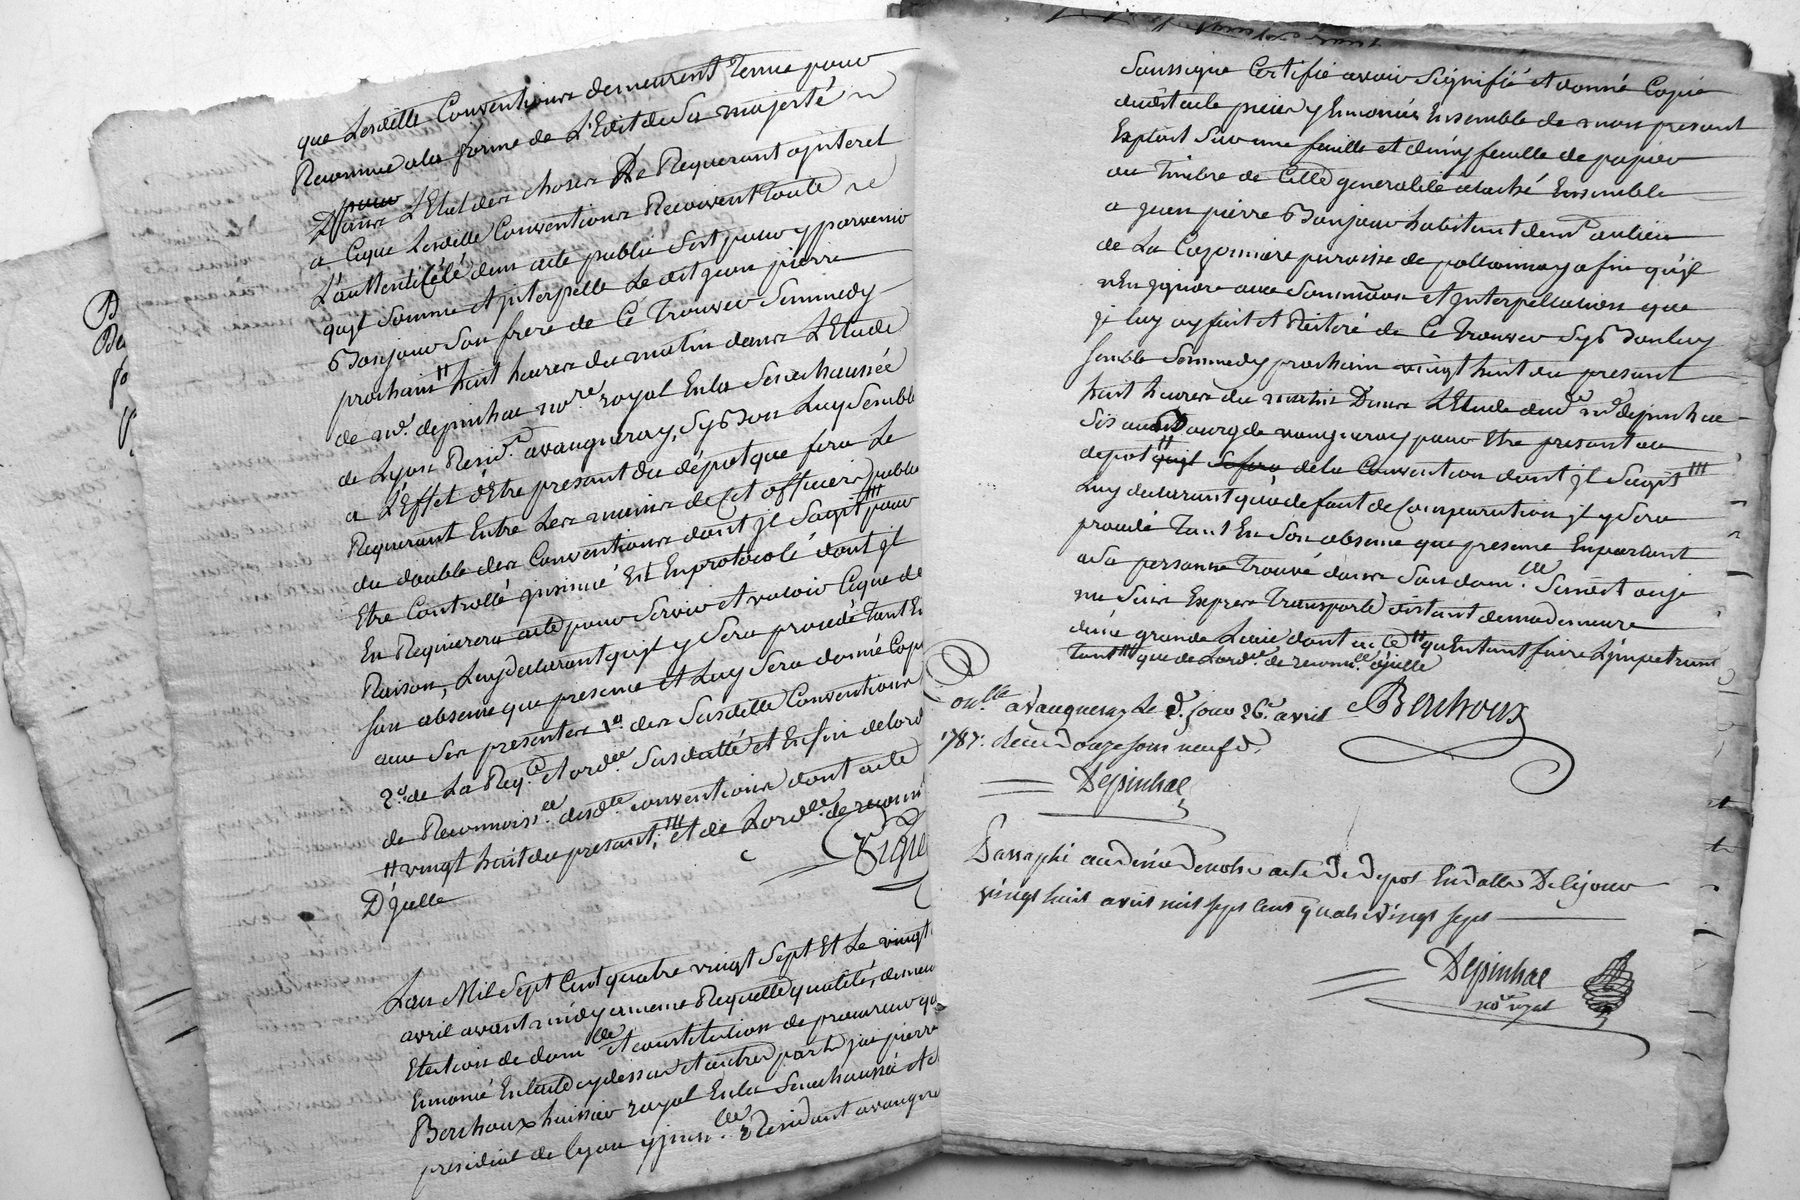 que Lesditte Conventions demeurent Tenue pour
Reconnue a la forme de L'Edit de Sa majesté
Dans L'Etat des choses Le Requerant ajnteret
a Ceque Lesditte Conventions Recoivent Toute
L'auttenticité dun acte public Sest pour y parvenir
qujl Somme et jnterpelle Le dit jean pierre
Bonjour Son frere de Ce Trouver Sammedy
prochain # huit heures du matin dans L'Etude
de me. depinhac nore. royal En la Senechaussée
de Lyon Residt. a vaugneray, Sy Bon Luy Semble
a L'Effet d'Etre present du dépot que fera Le
Requerant Entre Les mains de Cet officier public
du double des Conventions dont jl Sagit ### pour
Etre Controllé jnsinué Et Enprotocolé dont jl
En Requierera acte pour Servir et valoir Ceque de
Raison, Luy declarant qujl y Sera procedé Tant En
Son absence que presence et Luy Sera donné Copie
avec Ses presentes 1º. des Susditte Conventions
2º. de La Reqte. et ordce. Susdatté et Enfin de lord
de Reconnoisce. desdte. conventions dont acte
# vingt huit du présant; ### et de Lordce. de reconn
D'jcelle
Lan Mil Sept Cent quatre vingt Sept Et Le vingt
avril avant midy a meme Requette qualités, demeu
Election de domlle. et constitution de procureur qu
Ennoncé En lacte cy dessus et autres parts jai pierre
Berthoux huissier royal En la Senechaussée et
presidial de lyon y jmmlé. Residant a vaugneray
Soussigne Certifie avoir Signifié et donné Copie
dudit acte pieces y Ennoncés Ensemble de mon present
Exploit Sur une feuille et demy feuille de papier
au Timbre de Cette generalité ataché Ensemble
a jean pierre Bonjour habitant demt. au lieu
de La Cazorniere paroisse de pollionnay afin qujl
nEn jgnore avec Sommation et jnterpellation que
je luy ay fait et Reiteré de Ce Trouver Sy Bon luy
Semble Sammedy prochain vingt huit du présant
huit heures du matin Dans L'Etude dud. me. depinhac
Sis au Bourg de vaugneray pour Etre present au
depot qujl Se fera de la Convention dont jl Sagit ###
Luy declarant qua defaut de Comparution jl y Sera
procedé Tant En Son absence que presence En parlant
a Sa personne Trouvé dans Son domlle. Sernet ou je
me Suis Expres Transporté distant de ma demeure
dune grande Lieue dont acte # quEntent faire Ljmpetrant
tant ### que de Lordce. de reconnce. djcelle
Conlle. a vaugneray le d. jour 26e. avril
1787. Recu Douze sous neuf d.
Berthoux
Depinhac
Parraphé au desir de notre acte de depot En datte De Cejour
vingt huit avril mil sept Cent quatre vingt sept
Depinhac
nore royal